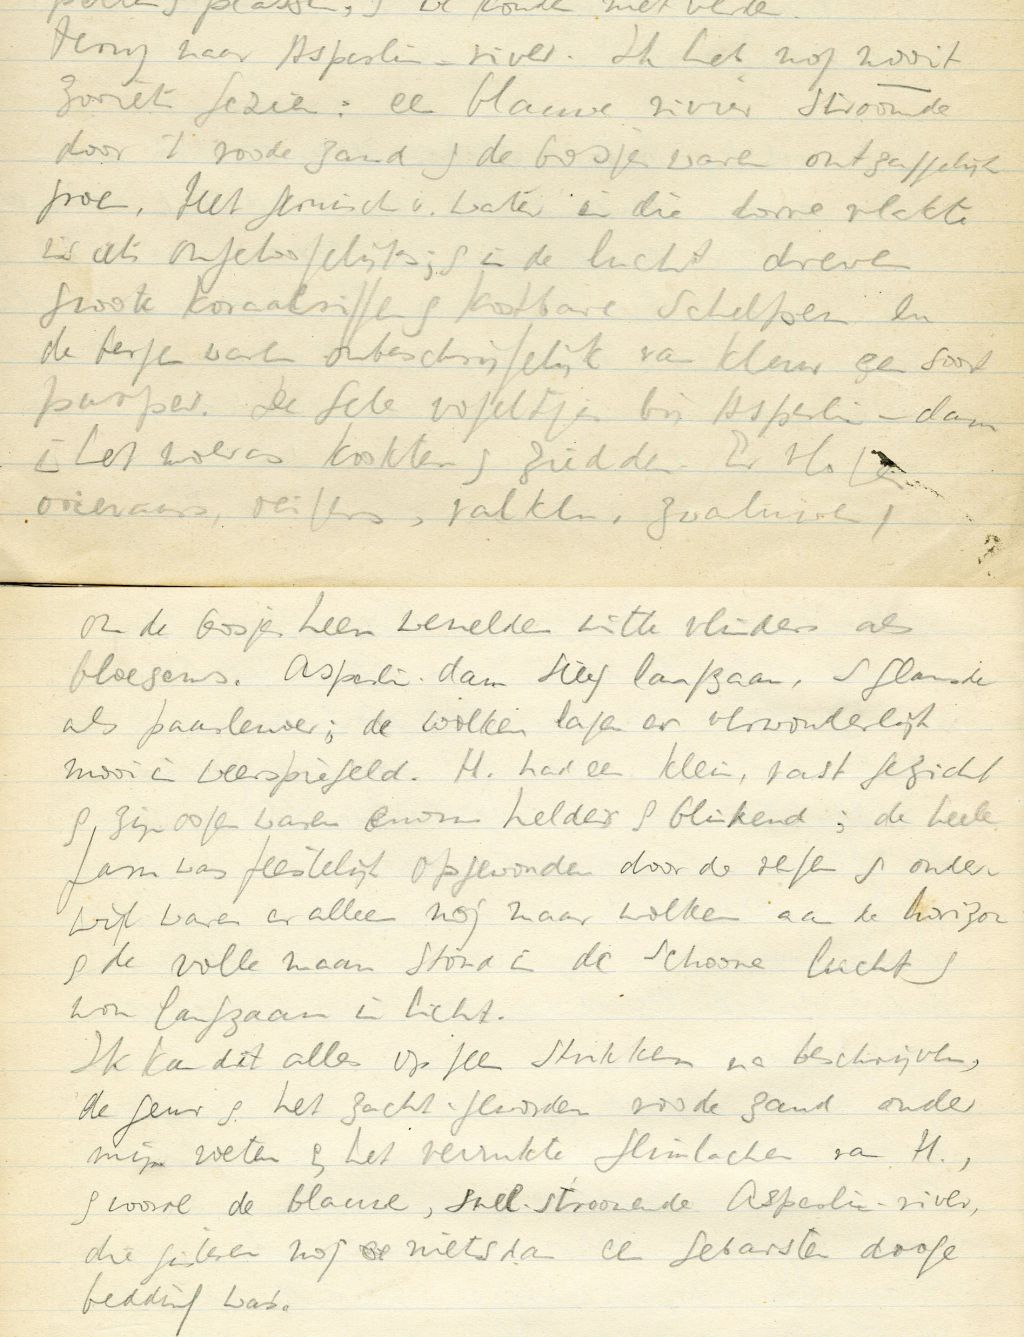 plassen, & we konden niet verder.
Terug naar Asperlin-river. Ik heb nog nooit
zooiets gezien: een blauwe rivier stroomde
door 't roode zand & de boosjes waren ontzaffelijk
groen. Het geruisch v. water in die dorre vlakte
is iets ongeloofelijks; & in de lucht dreven
groote koraalriffen & kostbare schelpen en
de bergen waren onbeschrijfelijk van kleur een soort
purper. De gele vogeltjes bij Asperlin-dam
in het moeras kookten & ziedden. Er
ooievaars, reigers, valken, zwaluwen,
om de bosjes heen wemelden witte vlinders als
bloesems. Asperlin-dam steeg langzaam, & glansde
als paarlemoer; de wolken lagen er verwonderlijk
mooi in weerspiegeld. H. had een klein, vast gezicht
& zijn oogen waren enorm helder & blinkend; de heele
farm was feestelijk opgewonden door de regen & onder-
wijl waren er alleen nog maar wolken aan de horizon
& de volle maan stond in de schoone lucht &
won langzaam in licht.
Ik kan dit alles op geen stukken na beschrijven,
de geur & het zacht-geworden roode zand onder
mijn voeten & het verrukte glimlachen van H.,
& vooral de blauwe, snel-stroomende Asperlin-river,
die gisteren nog niets dan een gebarsten droge
bedding was.